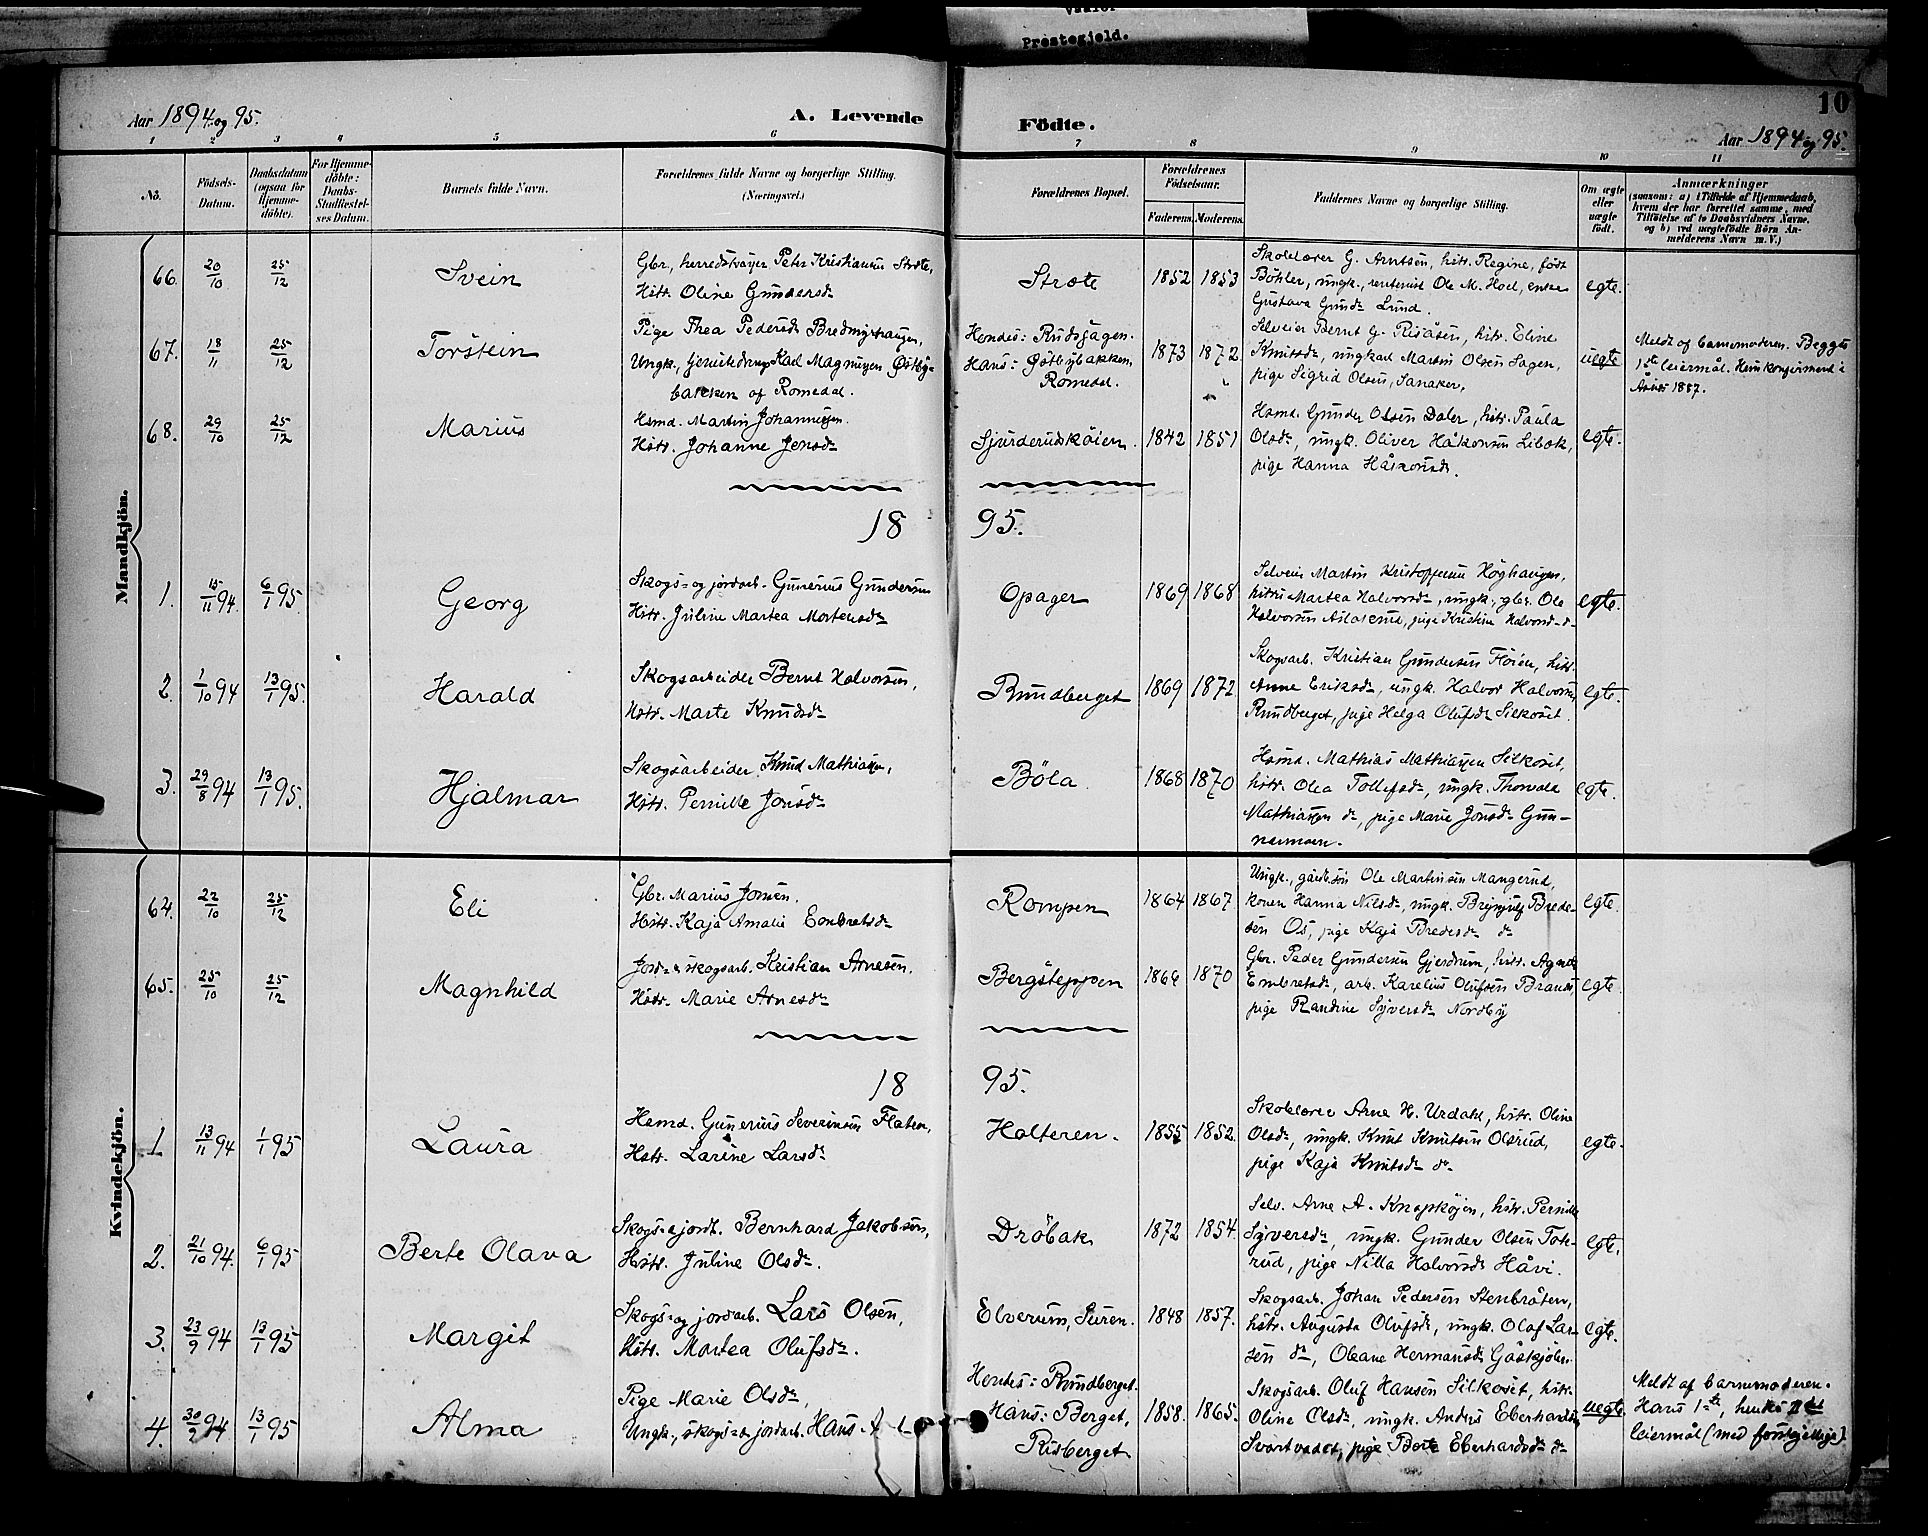 Vaaler
Præstegjeld.
10
Aar 1894 og 95.
A. Levende
Födte.
Aar 1894 og 95.
1 2 3 4 5 6 7 8 9 10 11
No.
Födsels-
Datum.
Daabsdatum
(ogsaa for
Hjemme-
döbte).
For Hjemme-
döbte:
Daabs-
Stadfæstel-
ses Datum.
Barnets fulde Navn.
Forældrenes fulde Navne og borgerlige Stilling.
(Næringsvei.)
Forældrenes Bopæl.
Forældrenes
Födselsaar.
Faderens. Moderens.
Faddernes Navne og borgerlige Stilling.
Om ægte
eller
uægte
födt.
Anmærkninger
(saasom: a) i Tilfælde af Hjemmedaab,
hvem der har forrettet samme, med
Tilföielse af to Daabsvidners Navne,
og b) ved uægtefödte Börn An-
melderens Navn m. V.)
Mandkjön.
66. 20/10 25/12 Svein
Gbr., herredskasser Peter Kristiansen Stræte,
Hstr. Oline Gundersdr
Stræte 1852 1853
Skolelærer G. Arntsen, hstr. Regine, født
Böhler, ungk., rentenist Ole M. Hoel, enke
Gustava Gundr Lund.
egte.
67. 18/11 25/12 Torstein
Pige Thea Pedersdr Bredmyrhaugen,
Ungk., tjenestedreng Karl Magnussen Østby-
bakken af Romedal.
Hendes: Rudsjagen.
Hans: Østbybakken
Romedal.
1873 1872
Selveier Bernt G. Risåsen, hstr. Eline
Knutsdr, ungkarl Martin Olsen Sagen,
pige Sigrid Olsen, Sanaker.
uegte
Meldt af barnemoderen. Begges
1ste leiermål. Hun konfirmeret i
Åsnes 1887.
68. 29/10 25/12 Marius
Hsmd. Martin Johannessen.
Hstr. Johanne Jensdr
Sjurderudskøien. 1842 1851
Hsmd. Gunder Olsen Daler, hstr. Paula
Olsdr, ungk. Oliver Håkonsen Libæk,
pige Hanna Håkonsdr.
egte.
18 95.
1. 15/11 94. 6/1 95. Georg
Skogs- og jordarb. Gunerius Gundersen
Hstr. Juline Martea Mortensdr
Opager 1869 1868
Selveier Martin Kristoffersen Høghaugen,
hstr. Martea Halvorsdr, ungk., gbr. Ole
Halvorsen Aslaksrud, pige Kristine Halvorsdr dr
egte.
2. 1/10 94 13/1 95. Harald
Skogsarbeider Bernt Halvorsen,
Hstr. Marte Knudsdr
Rundberget 1869 1872
Skogsarb. Kristian Gundersen Fløien, hstr.
Anne Eriksdr, ungk. Halvor Halvorsen
Rundberget, pige Helga Olufsdr Silkoset.
egte.
3. 29/8 94 13/1 95. Hjalmar
Skogsarbeider Knud Mathiasen,
Hstr. Pernille Jonsdr
Böla. 1868 1870
Hsmd. Mathias Mathiassen Silkoset,
hstr. Olea Tollefsdr, ungk. Thorvald
Mathiassen dr, pige Marie Jonsdr Gun-
narmoen.
egte.
Kvindekjön.
64. 22/10 25/12 Eli
Gbr. Marius Jonsen.
Hstr. Kaja Amalie Embretsdr
Rompen 1864 1867
Ungk., gårds.søn Ole Martinsen Mangerud,
konen Hanna Nilsdr, ungk. Brynjulf Brede-
sen Os, pige Kaja Bredesdr dr
egte.
65. 25/10 25/12 Magnhild
Jord- & skogsarb. Kristian Arnesen.
Hstr. Marie Arnesdr
Bergsteppen 1866 1870
Gbr. Peder Gundersen Gjerdrum, hstr. Agnete
Embretsdr, arb. Karelius Olufsen Brandt,
pige Randine Syversdr Nordby
egte.
18 95.
1 13/11 94 1/1 95 Laura
Hsmd. Gunerius Severinsen Flaten,
Hstr. Larine Larsdr
Holteren. 1855 1852.
Skolelærer Arne H. Urdahl, hstr. Oline
Olsdr, ungk. Knut Knutsen Olsrud,
pige Kaja Knutsdr dr
egte.
2. 21/10 94. 6/1 95 Berte Olava
Skogs- & jordt. Bernhard Jakobsen,
Hstr. Juline Olsdr.
Dröbak 1872 1854.
Selv. Arne A. Knapkøjen, hstr. Pernille
Syversdr, ungk. Gunder Olsen Tok-
rud, pige Nilla Halvorsdr Håvi.
egte.
3. 23/9 94 13/1 95 Margit
Skogs- og jordarb. Lars Olsen,
Hstr. Martea Olufsdr.
Elverum, Furen. 1848 1857.
Skogsarb. Johan Pedersen Stenbråten,
hstr. Augusta Olufsdr, ungk. Olaf Lar-
sen dr, Oleane Hermansdr Gåskjølen
egte.
4. 30/9 94 13/1 95 Alma
Pige Marie Olsdr,
Ungk., skogs- & jordarb. Hans
Hendes: Rundberget.
Hans: Berget,
Risberget
1858. 1865.
Skogsarb. Oluf Hansen Silkoset, hstr.
Oline Olsdr, ungk. Anders Eberhardsen
Svartvadet, pige Berte Eberhardsdr dr
uegte.
Meldt af barnemoderen.
Hans 1ste, hendes 2det
leiermål (med forskjellige)